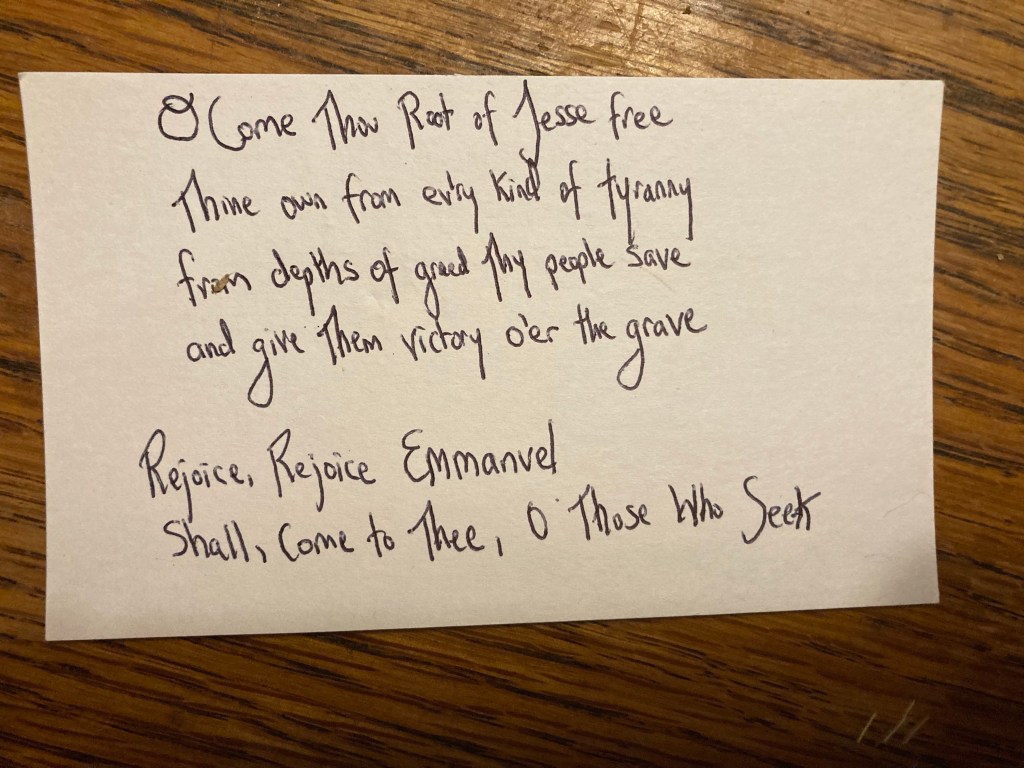 O Come Thou Root of Jesse free
Thine own from ev'ry kind of tyranny
from depths of greed Thy people save
and give Them victory o'er the grave
Rejoice, Rejoice Emmanuel
Shall, Come to Thee, O Those Who Seek